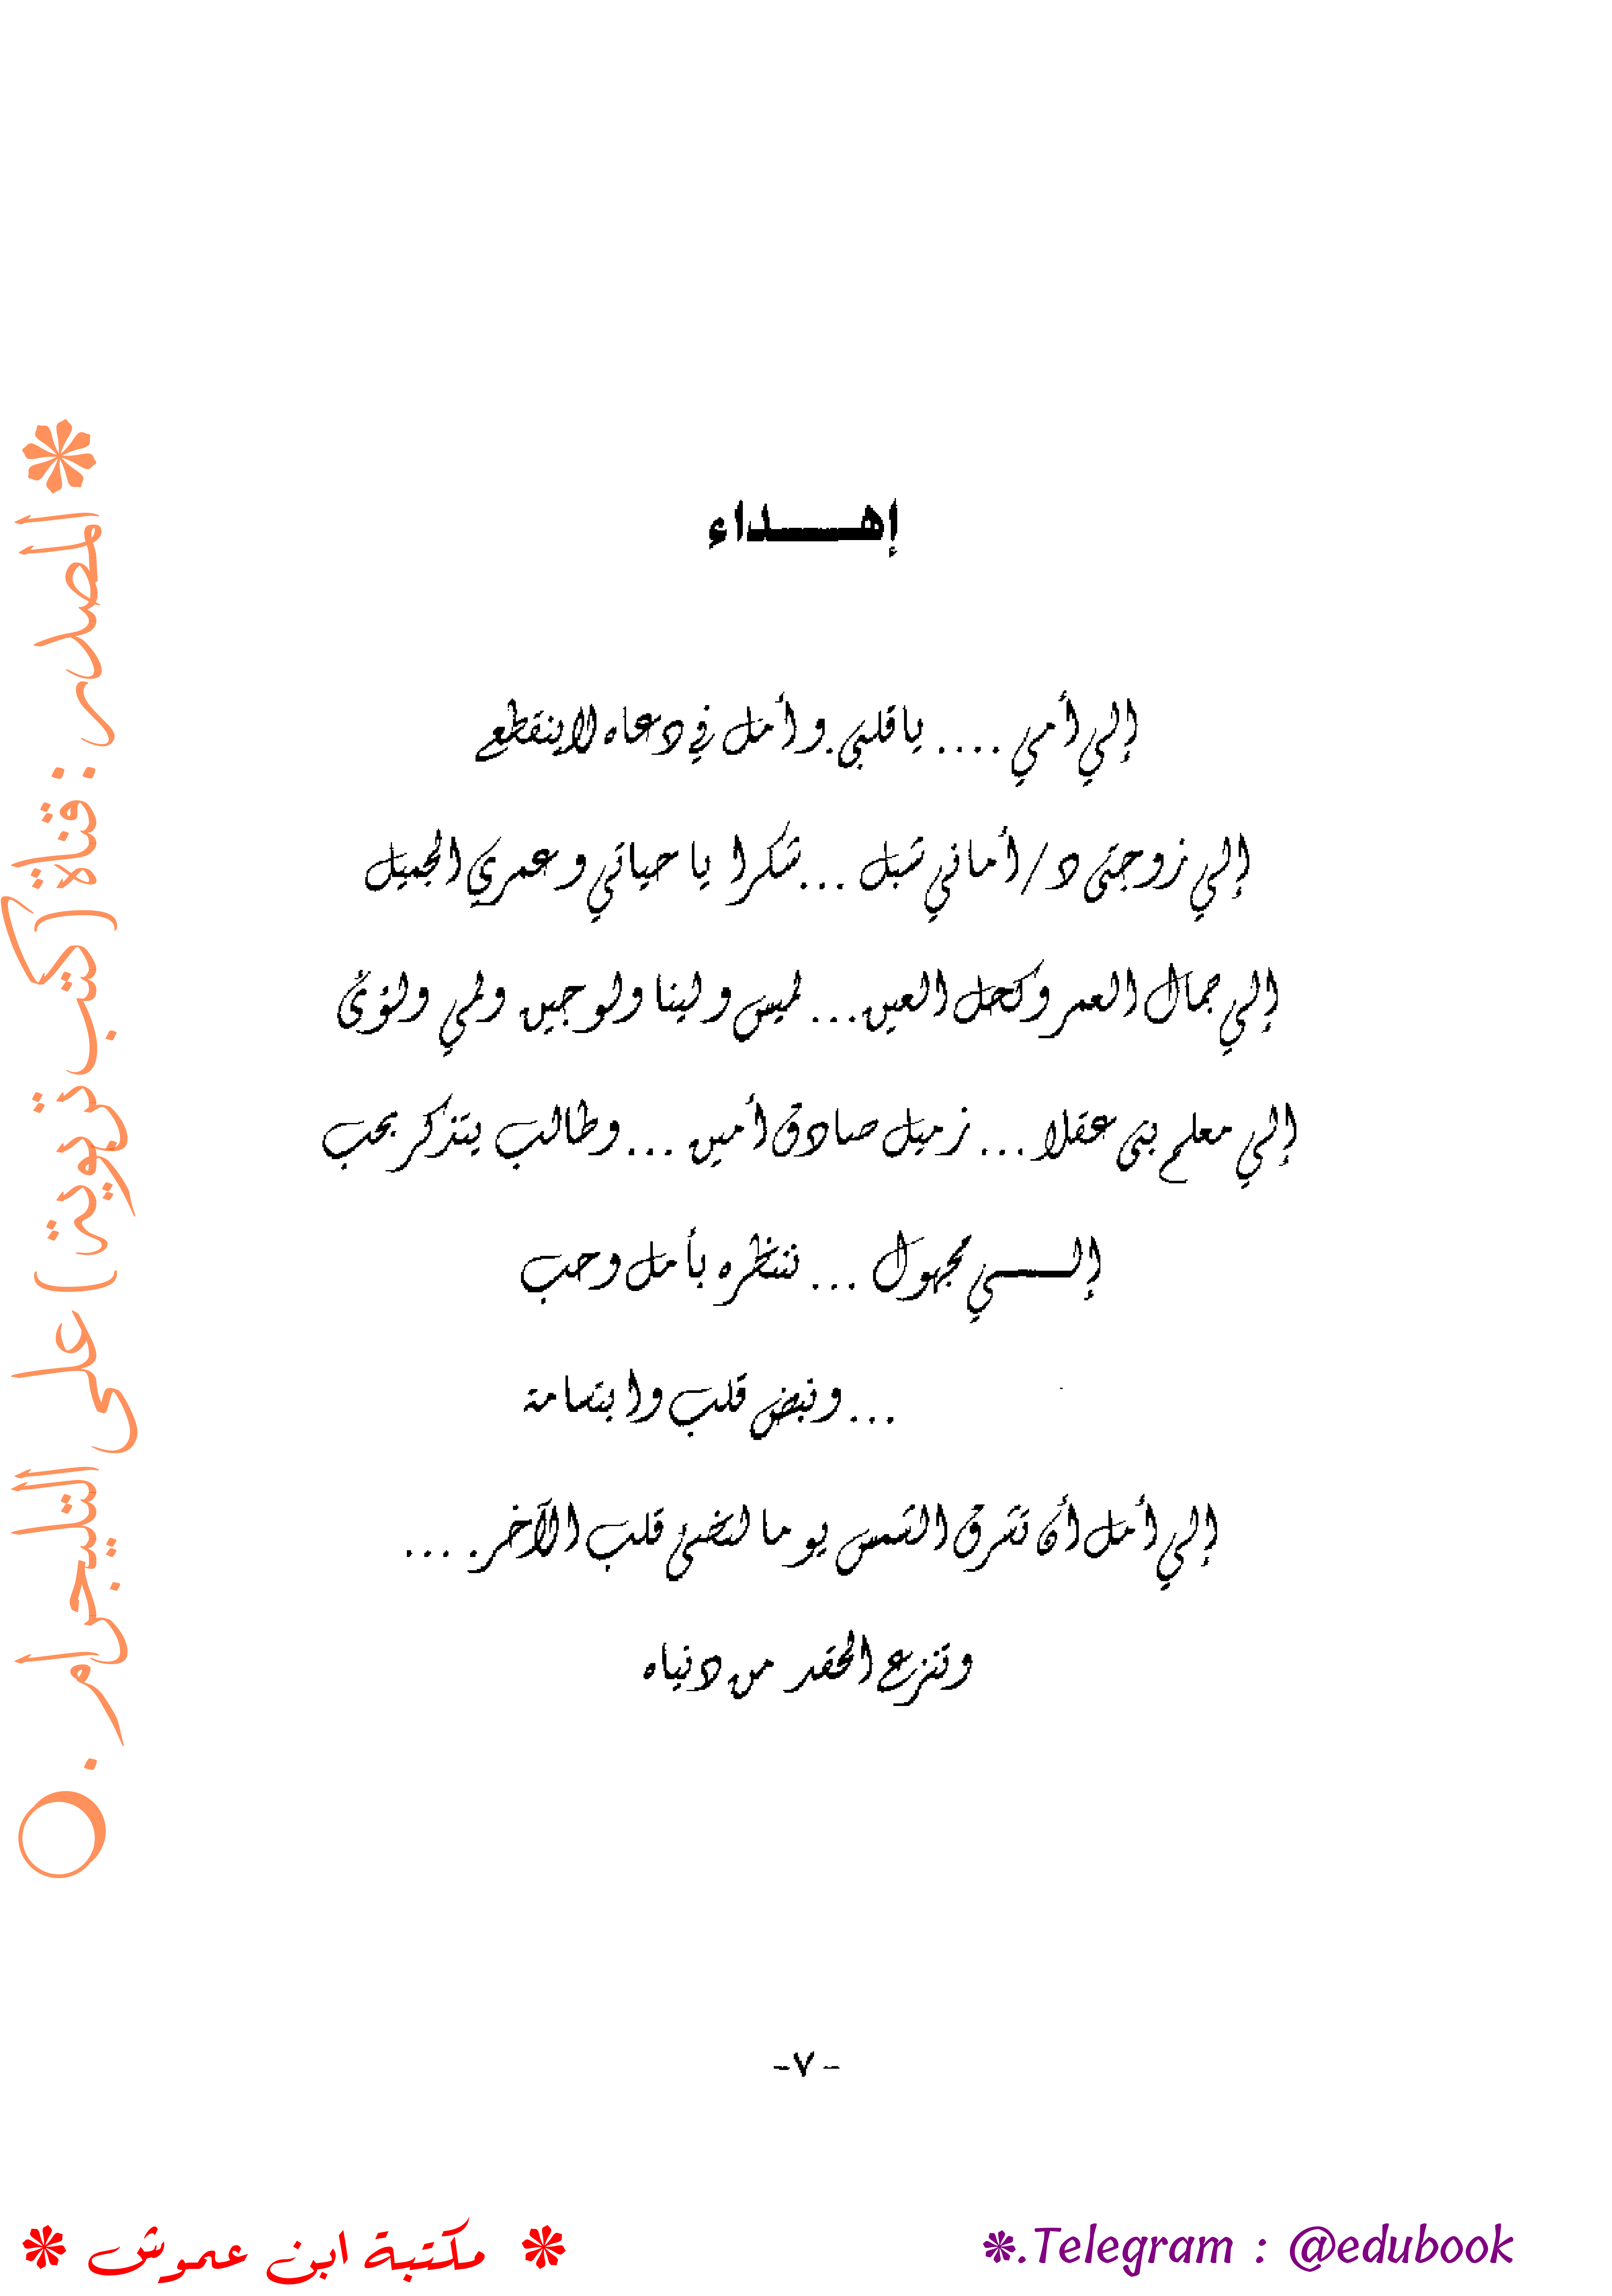 إهـــــداء
إلي أمي .... يا قلبي . وأمل في دعاه لا ينقطع
إلي زوجتى د/ أماني شبل ...شكرا يا حياتي وعمري الجميل
إلي جمال العمر وكحل العين... لميس ولينا ولوجين ولمي ولؤىّ
إلي معلم بنى عقلا ... زميل صادق أمين ... وطالب يتذكر بحب
إلـــــي مجهول ... ننتظره بأمل وحب
... ونبض قلب وابتسامة
إلي أمل أن تشرق الشمس يوما لتضئ قلب الآخر. ...
وتنزع الحقد من دنياه
-٧-
* المصدر : قناة ( كتب تربوية ) على التليجرام .
* مكتبة ابن عموش *
*.Telegram : @edubook